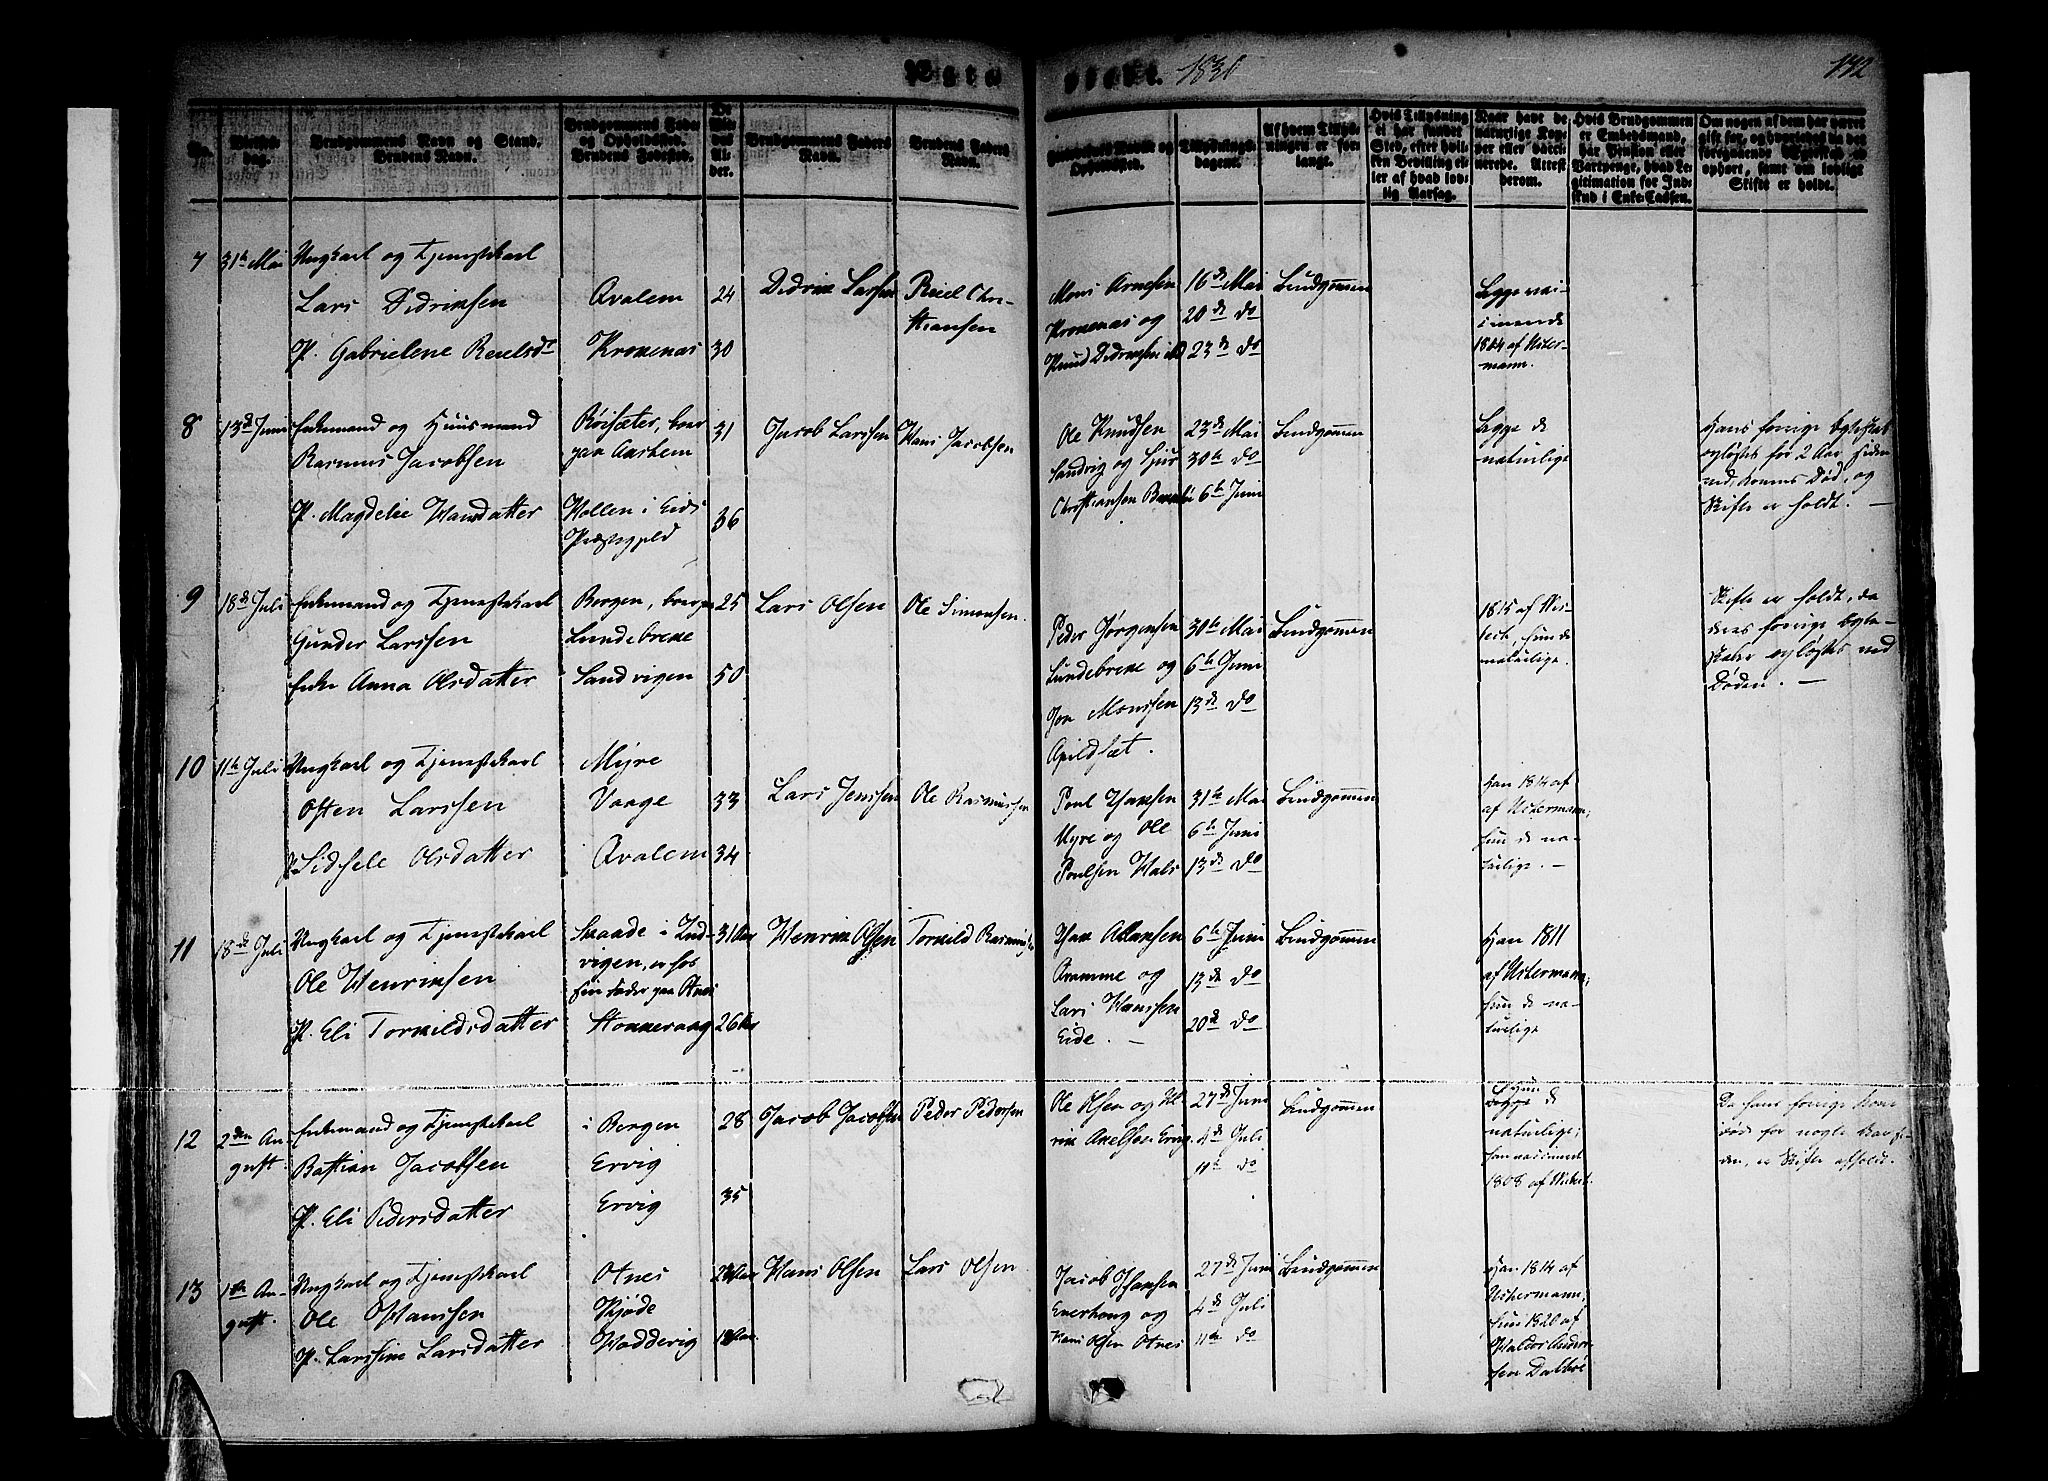 Egte-
viede. 1830
172
No.
Vielses-
dag.
Brudgommens Navn og Stand,
Brudens Navn.
Brudgommens Føde-
og Opholdssted.
Brudens Fødested.
De
Vie-
des
Al-
der.
Brudgommens Faders
Navn.
Brudens Faders
Navn.
Forlovernes Navne og
Opholdssted.
Tillysnings-
dagene.
Af hvem Tillys-
ningen er for-
langt.
Hvis Tillysning
ei har fundet
Sted, efter hvil-
ken Bevilling el-
ler af hvad lov-
lig Aarsag.
Naar have de
naturlige Kop-
per eller vacci-
nerede. Attest
derom.
Hvis Brudgommen
er Embedsmand,
har Pension eller
Vartpenge, hvad Le-
gitimation for Ind-
skud i Enke-Cassen.
Om nogen af dem har været
gift før, og hvorledes da det
foregaaende Ægteskab er
ophørt, samt om lovligt
Skifte er holdt.
7
31te Mai
Ungkarl og Tjenestekarl
Lars Didriksen
P. Gabrielene Reielsdr
Qvalem
Kroknæs
24
30
Didrik Larsen
Reiel Chri-
stiansen
Mons Arnesen
Kroknæs og
Knud Didriksen
16de Mai
20de do
23de do
Brudgommen
Begge vac-
cinerede
1814 af Ucher-
mann.
8
13de Juni
Enkemand og Huusmand
Rasmus Jacobsen
P. Magdelie Hansdatter
Røisæter, boer
paa Aarhem
Hollen i Eids
Præstegjeld
31
36
Jacob Larssen
Hans Jacobsen
Ole Knudsen
Sandvig og Sjur
Christiansen
23de Mai
30te do
6te Juni
Brudgommen
Begge de
naturlige
Hans forrige Egteskab
opløstes for 2 Aar siden
ved Konens Død, og
Skifte er holdt. —
9
18de Juli
Enkemand og Tjenestekarl
Gunder Larssen
Enke Anna Olsdatter
Bergen, boer paa
Lundebrekke
Sandvigen
25
50
Lars Olsen
Ole Simonsen.
Peder Jørgensen
Lundebrekke og
Jon Monssen
Apildsæt.
30te Mai
6te Juni
13de do
Brudgommen
1815 af
hun de
naturlige.
Skifte er holdt, da
deres forrige Egte-
skaber opløstes ved
Døden. —
10
11te Juli
Ungkarl og Tjenestekarl
Osten Larssen
P. Sidsele Olsdatter
Myre
Vaage
Qvalem
33
34
Lars Jenssen
Ole Rasmussen
Poul Hansen
Myre og Ole
Poulsen Hals
31te Mai
6te Juni
13de do
Brudgommen
Han 1814 af
af Uchermann,
hun de na-
turlige. —
11
18de Juli
Ungkarl og Tjenestekarl
Ole Henriksen
P. Eli Torkildsdatter
Skaade i Ind-
vigen, er hos
sin Fader paa Otnes
Stokkevaag
31 Aar
26 Aar
Henrik Olsen
Torkild Rasmussen
Hans
Qvamme og
Lars Hanssen
Eide. —
6te Juni
13de do
20de do
Brudgommen
Han 1811
af Uchermann,
hun de na-
turlige
12
2den Au-
gust.
Enkemand og Tjenestekarl
Bastian Jacobsen
P. Eli Pedersdatter
i Bergen
Ervig
Ervig
28
35
Jacob Jacobsen
Peder Pedersen
Ole Olsen og
Axelsen Ervig.
27de Juni
4de Juli
11te do
Brudgommen
Hun de
naturlige;
han vaccineret
1808 af
Da hans forrige Kone
døde for nogle Aar si-
den, er Skifte afholdt.
13
1ste Au-
gust.
Ungkarl og Tjenestekarl
Ole Hanssen
P. Larssine Larsdatter
Otnes
Kjøde
Hodderig
Hans Olsen
Lars Olsen
Jacob Hansen
Enerhoug og
Hans Olsen Otnes
27de Juni
4de Juli
11te do
Brudgommen
Han 1814 af
Uchermann,
hun 1820 af
Anders-
sen Dalbøe